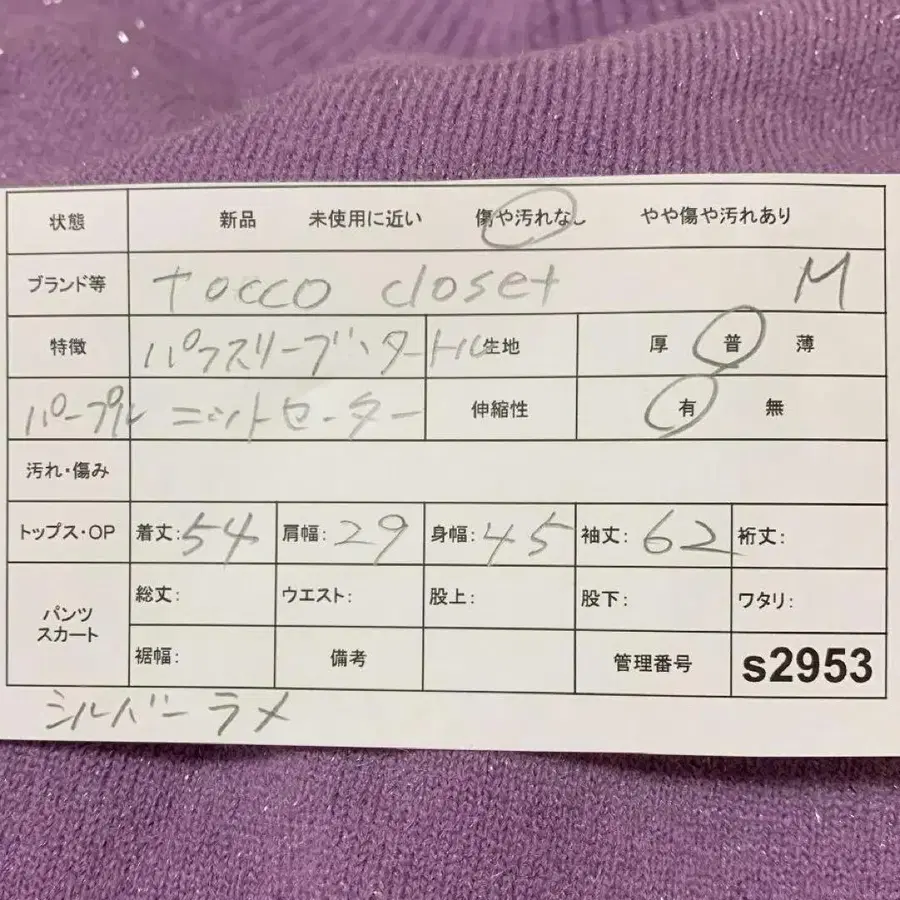 状態 新品 未使用に近い 傷や汚れなし やや傷や汚れあり
ブランド等 tocco closet M
特徴 パフスリーブ、タートル 生地 厚 普 薄
パープル ニットセーター 伸縮性 有 無
汚れ・傷み
トップス・OP 着丈:54 肩幅:29 身幅:45 袖丈:62 裄丈:
パンツ スカート 総丈: ウエスト: 股上: 股下: ワタリ:
裾幅: 備考 管理番号 s2953
シルバーラメ